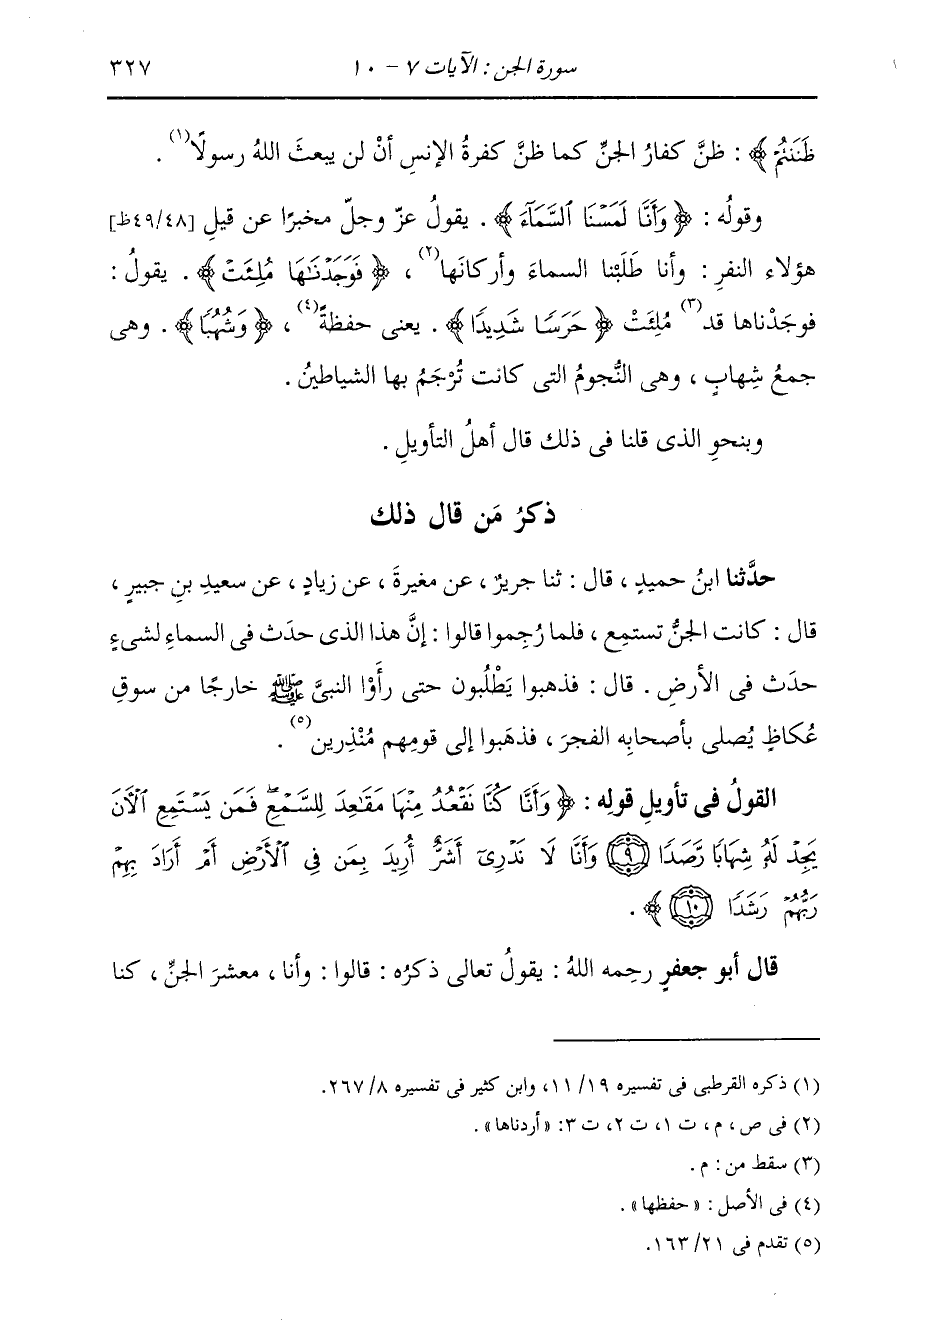 سورة الجن : الآيات ٧ - ١٠ ٣٢٧
ظَنَنتُمْ ﴾ : ظنَّ كفارُ الجنِّ كما ظنَّ كفرةُ الإنسِ أنْ لن يبعثَ اللهُ رسولًا(١) .
وقولُه : ﴿ وَأَنَّا لَمَسْنَا ٱلسَّمَآءَ ﴾ . يقولُ عزّ وجلّ مخبرًا عن قيلِ [٤٩/٤٨ظ]
هؤلاء النفرِ : وأنا طَلَبْنا السماءَ وأركانَها(٢) ، ﴿ فَوَجَدْنَٰهَا مُلِئَتْ ﴾ . يقولُ :
فوجَدْناها قد(٣) مُلِئَتْ ﴿ حَرَسًا شَدِيدًا ﴾ . يعنى حفظةً(٤) ، ﴿ وَشُهُبًا ﴾ . وهى
جمعُ شِهابٍ ، وهى النُّجومُ التى كانت تُرْجَمُ بها الشياطينُ .
وبنحوِ الذى قلنا فى ذلك قال أهلُ التأويلِ .
ذكرُ مَن قال ذلك
حدَّثنا ابنُ حميدٍ ، قال : ثنا جريرٌ ، عن مغيرةَ ، عن زيادٍ ، عن سعيدِ بنِ جبيرٍ ،
قال : كانت الجنُّ تستمِع ، فلما رُجِموا قالوا : إنَّ هذا الذى حدَث فى السماءِ لشىءٍ
حدَث فى الأرضِ . قال : فذهبوا يَطْلُبون حتى رأَوْا النبىَّ ﷺ خارجًا من سوقِ
عُكاظٍ يُصلى بأصحابِه الفجرَ ، فذهَبوا إلى قومِهم مُنْذِرين(٥) .
القولُ فى تأويلِ قولِه : ﴿ وَأَنَّا كُنَّا نَقْعُدُ مِنْهَا مَقَٰعِدَ لِلسَّمْعِ ۖ فَمَن يَسْتَمِعِ ٱلْآنَ
يَجِدْ لَهُۥ شِهَابًا رَّصَدًا ٩ وَأَنَّا لَا نَدْرِىٓ أَشَرٌّ أُرِيدَ بِمَن فِى ٱلْأَرْضِ أَمْ أَرَادَ بِهِمْ
رَبُّهُمْ رَشَدًا ١٠ ﴾ .
قال أبو جعفرٍ رحِمه اللهُ : يقولُ تعالى ذكرُه : قالوا : وأنا ، معشرَ الجنِّ ، كنا
(١) ذكره القرطبى فى تفسيره ١٩/ ١١، وابن كثير فى تفسيره ٨/ ٢٦٧.
(٢) فى ص ، م ، ت ١، ت ٢، ت ٣: «أردناها» .
(٣) سقط من : م .
(٤) فى الأصل : «حفظها» .
(٥) تقدم فى ٢١/ ١٦٣.